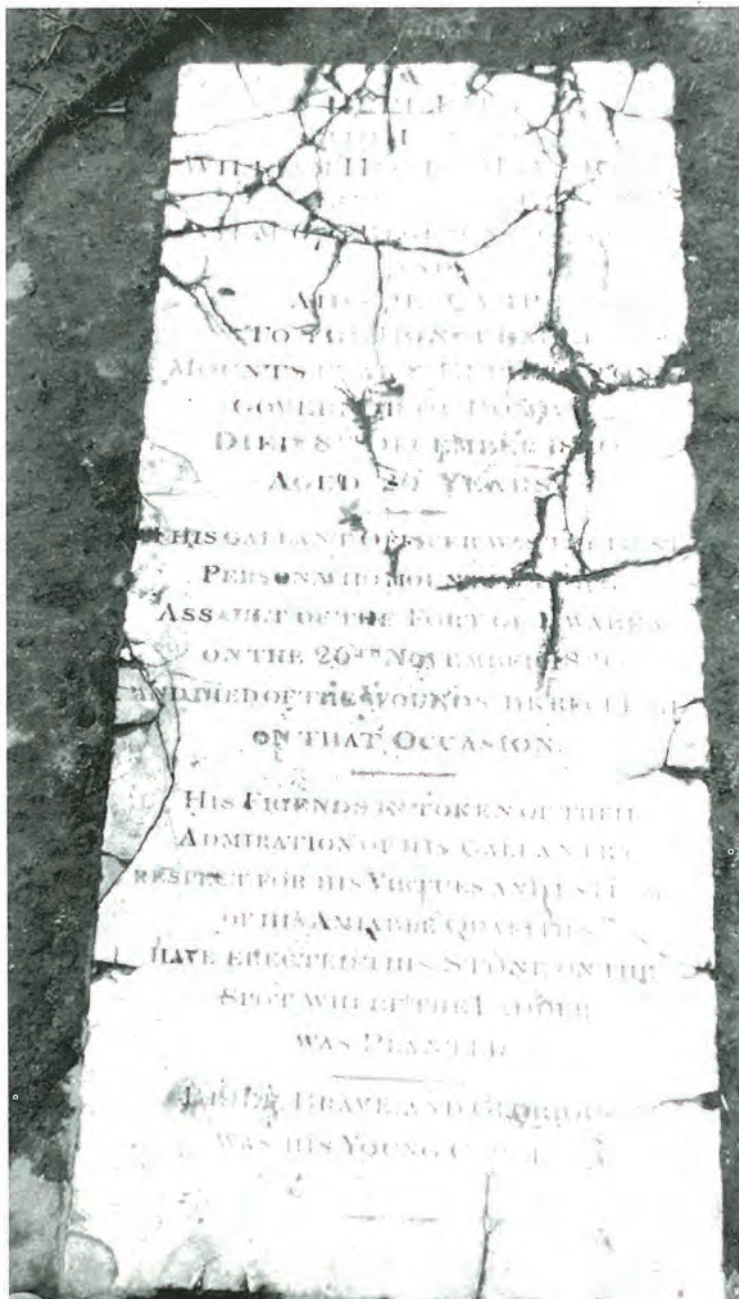 WILLIAM
AND
AIDE DE CAMP
TO THE HONOURABLE
MOUNTSTUART ELPHINSTONE
GOVERNOR OF BOMBAY
DIED 8TH DECEMBER 1820
AGED 20 YEARS
THIS GALLANT OFFICER WAS THE FIRST
PERSON WHO MOUNTED
ASSAULT OF THE FORT OF DWARKA
ON THE 26TH NOVEMBER 1820
AND DIED OF THE WOUNDS HE RECEIVED
ON THAT OCCASION.
HIS FRIENDS IN TOKEN OF THEIR
ADMIRATION OF HIS GALLANTRY
RESPECT FOR HIS VIRTUES AND ESTEEM
OF HIS AMIABLE QUALITIES
HAVE ERECTED THIS STONE ON THE
SPOT WHERE THE LADDER
WAS PLANTED
BRIEF, BRAVE AND GLORIOUS
WAS HIS YOUNG